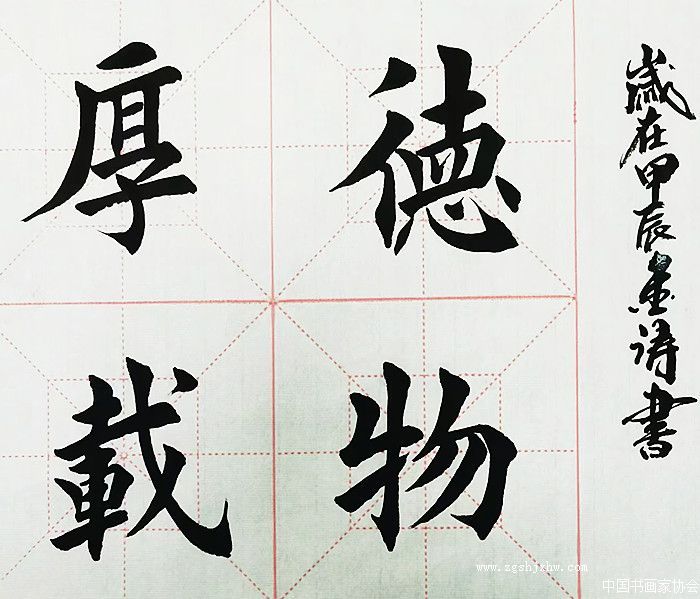 厚德
載物
歲在甲辰金濤書
www.zgshjxhw.com
中国书画家协会